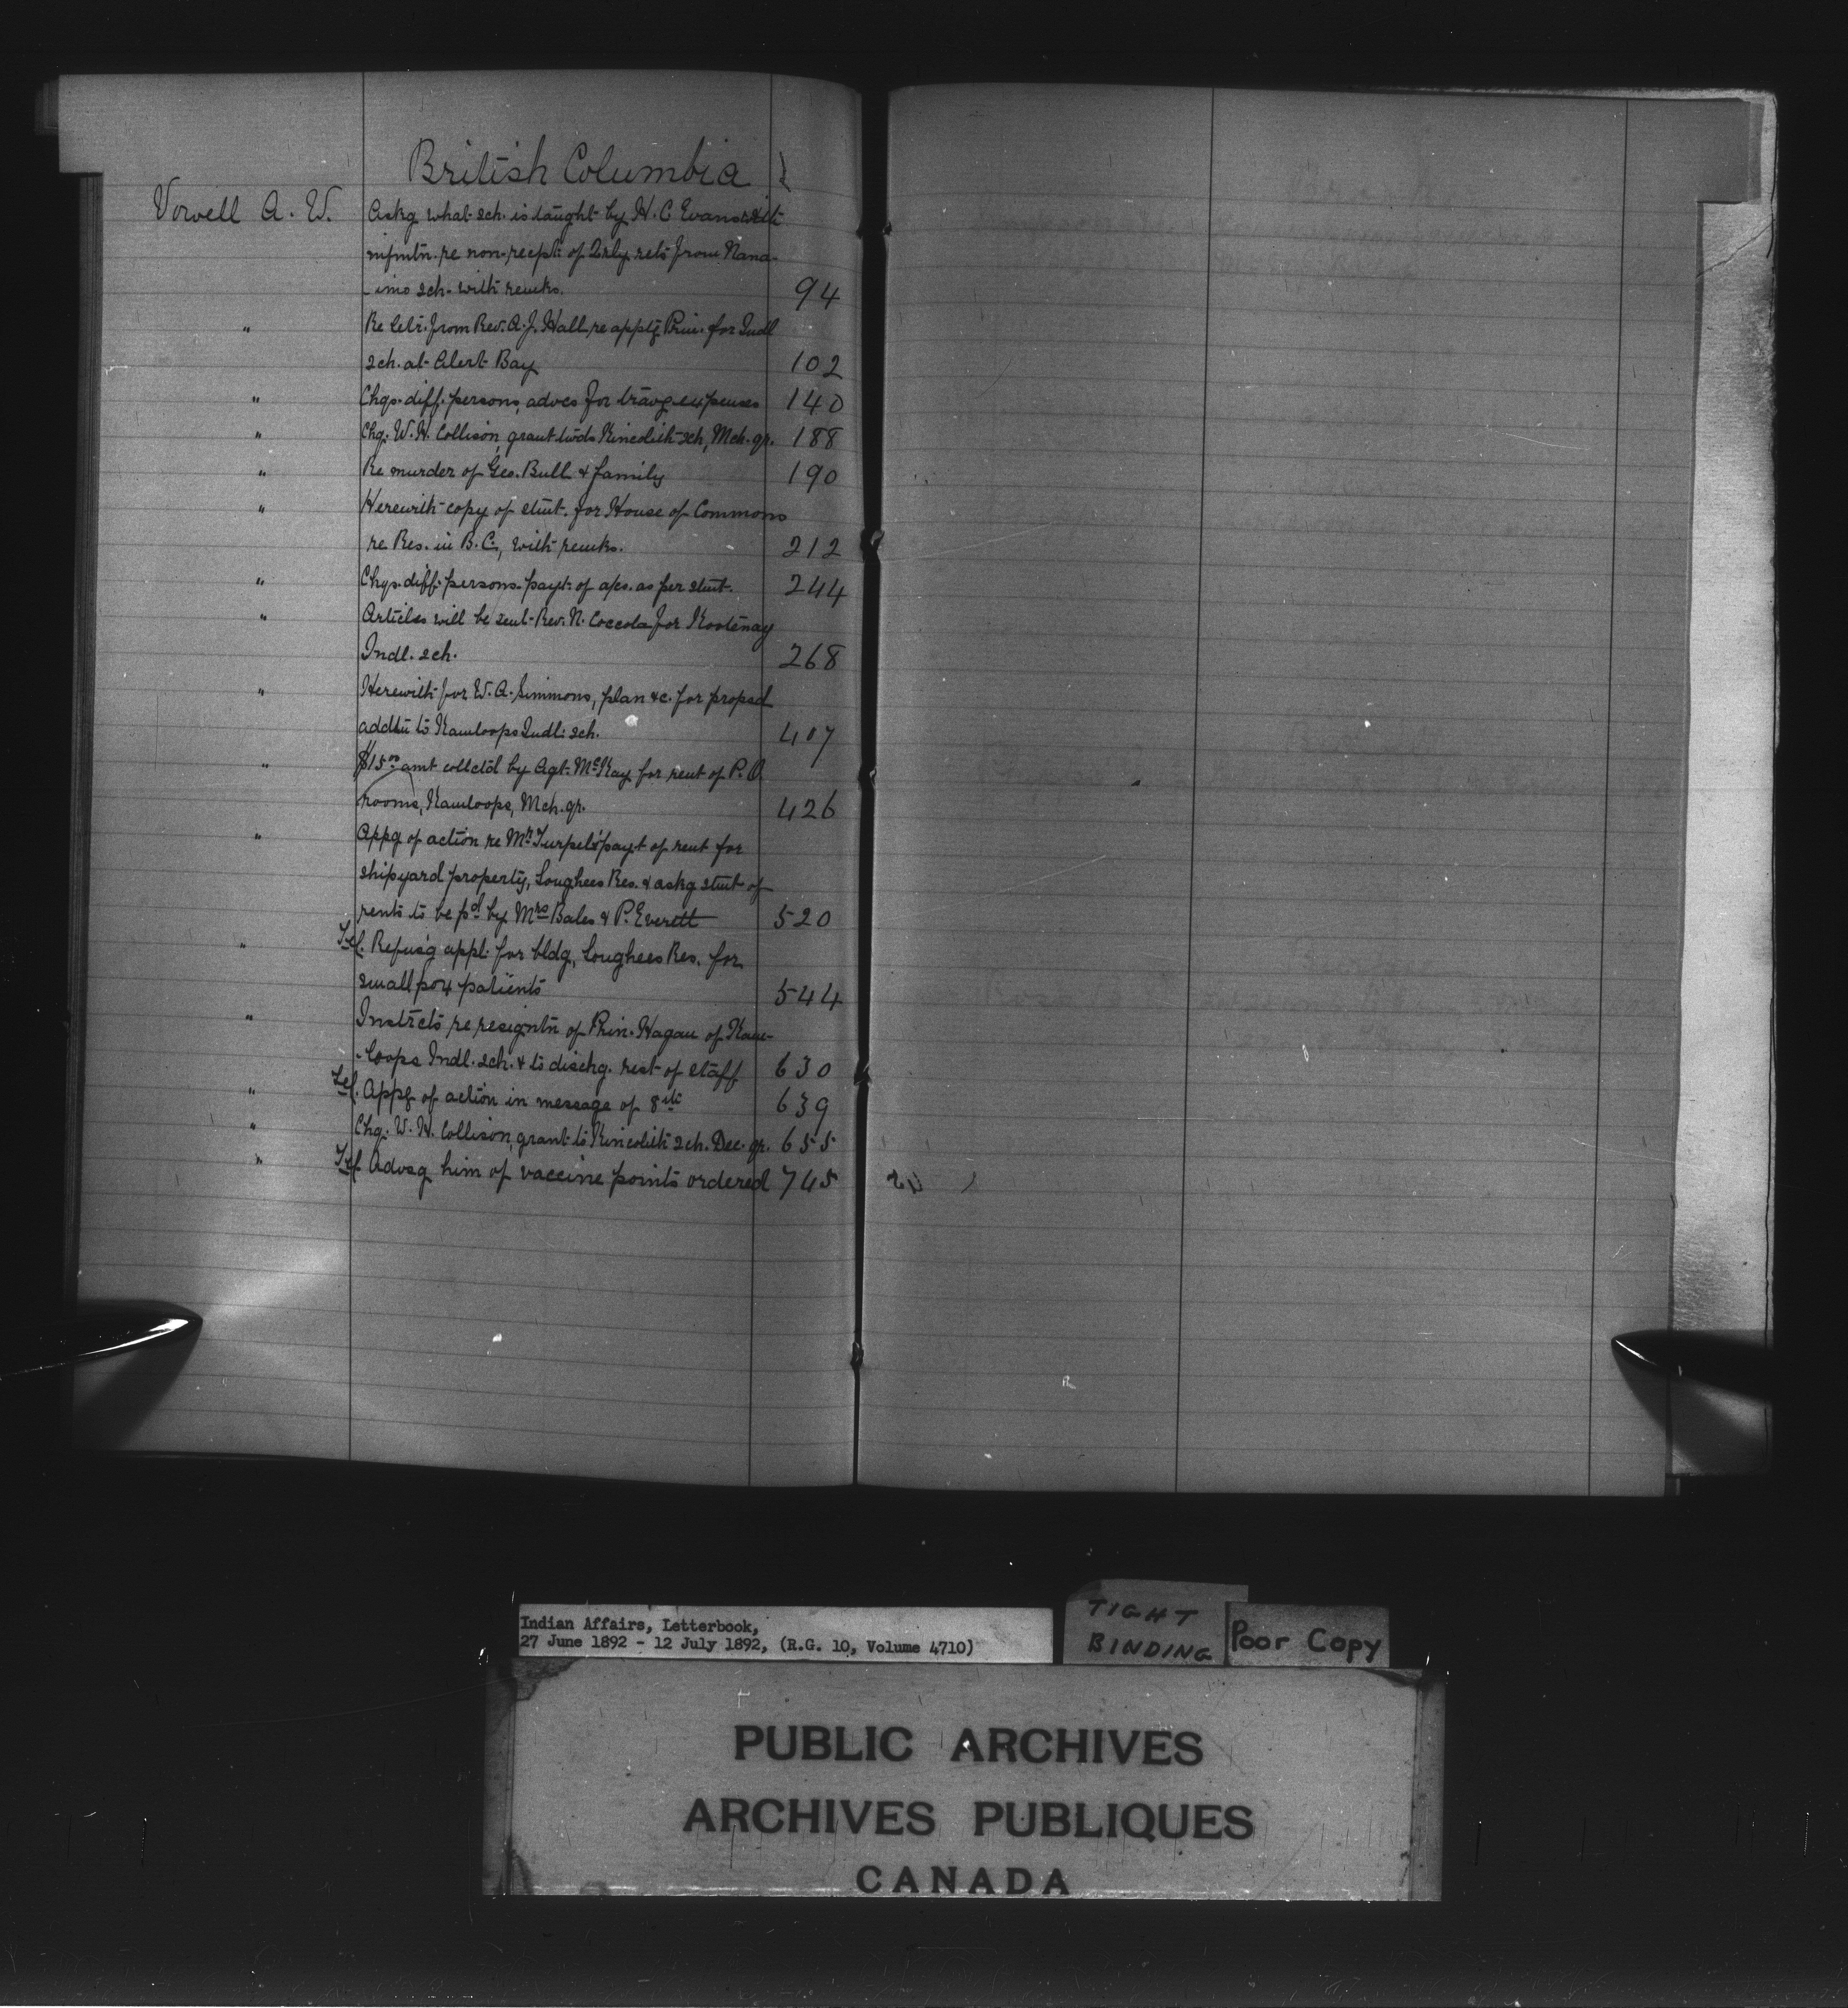 British Columbia
Vowell A. W. Askg what sch. is taught by H. C. Evans & with
infmtn. re non-recept: of Qrly. rets from Nana-
-imo sch. with remks. 94
" Re letr. from Rev. A. J. Hall re apptg Prin. for Indl
sch. at Alert Bay 102
" Chqs. diff. persons, advcs for travg expenses 140
" Chq. W. H. Collison, grant twds Kincolith sch, Mch. qr. 188
" Re murder of Geo. Bull & family 190
" Herewith copy of stmt. for House of Commons
re Res. in B. C., with remks. 212
" Chqs. diff. persons. payt: of a/cs. as per stmt. 244
" Articles will be sent Rev. N. Coccola for Kootenay
Indl. sch. 268
" Herewith for W. A. Simmons, plan &c. for propsd
addtn to Kamloops Indl: sch. 407
" $15.00 amt colletd by Agt. McKay for rent of P. O
rooms, Kamloops, Mch. qr. 426
" Appg of action re Mr Turpel's payt of rent for
shipyard property, Songhees Res. & askg stmt of
rents to be pd by Mrs Bales & P. Everett 520
" Tel. Refus'g appl: for bldg, Songhees Res. for
small pox patients 544
" Instrcts re resigntn of Prin. Hagan of Kam-
-loops Indl. sch. & to dischg. rest of staff 630
" Tel. Appg of action in message of 8th 639
" Chq. W. H. Collison, grant to Kincolith sch. Dec. qr. 655
" Tel. Advsg him of vaccine points ordered 745
Indian Affairs, Letterbook,
27 June 1892 - 12 July 1892, (R.G. 10, Volume 4710)
TIGHT
BINDING
Poor Copy
PUBLIC ARCHIVES
ARCHIVES PUBLIQUES
CANADA